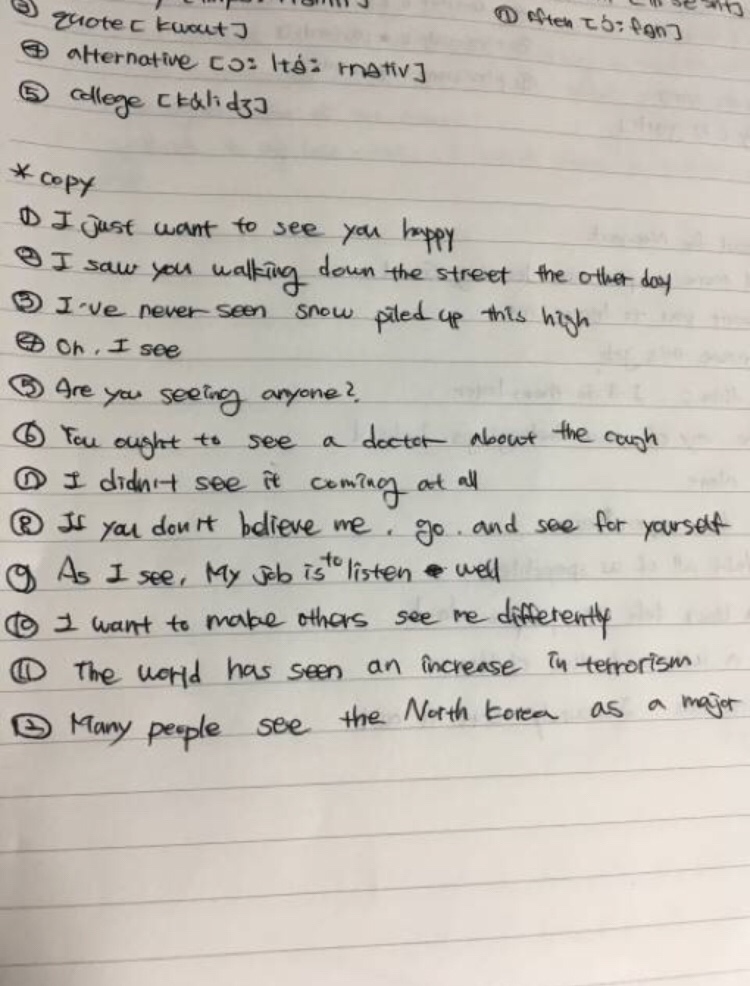 ③ quote [kwout]
① often [ɔ́:fən]
④ alternative [ɔ:ltə́:rnətiv]
⑤ college [kɑ́lidʒ]
* copy
① I just want to see you happy
② I saw you walking down the street the other day
③ I've never seen snow piled up this high
④ Oh. I see
⑤ Are you seeing anyone?
⑥ You ought to see a doctor about the cough
⑦ I didn't see it coming at all
⑧ If you don't believe me. go. and see for yourself
⑨ As I see, My job is to listen well
⑩ I want to make others see me differently
⑪ The world has seen an increase in terrorism
⑫ Many people see the North Korea as a major